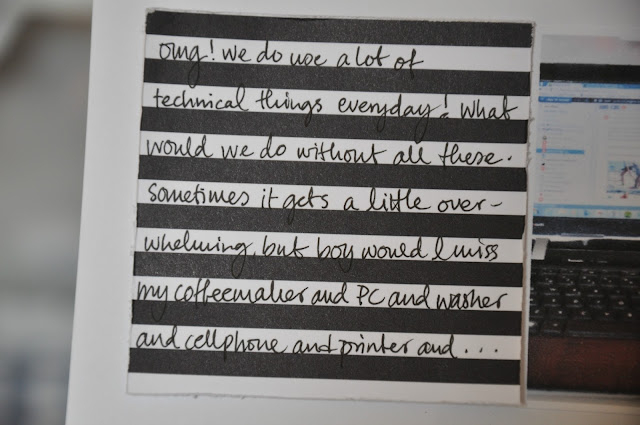 omg! we do use a lot of
technical things everyday! What
would we do without all these.
Sometimes it gets a little over-
whelming, but boy would I miss
my coffeemaker and PC and washer
and cellphone and printer and...